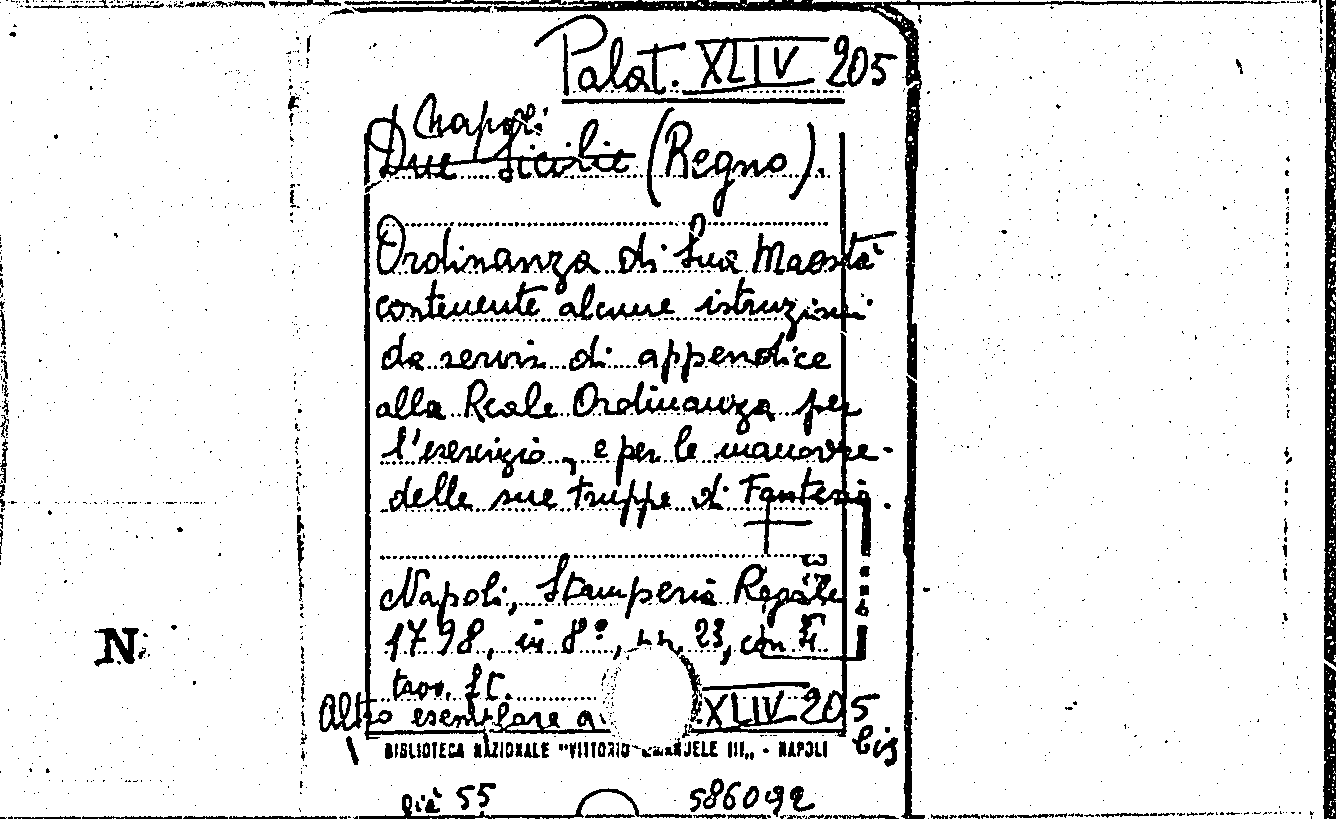 Palat. XLIV 205
Napoli
Due Sicilie (Regno).
Ordinanza di Sua Maestà
contenente alcune istruzioni
da servir di appendice
alla Reale Ordinanza per
l'esercizio, e per le manovre
delle sue truppe di Fanteria.
Napoli, Stamperia Regale
1798, in 8º, 23, con
tav. St.
Altro esemplare a XLIV 205
bis
BIBLIOTECA NAZIONALE "VITTORIO EMANUELE III" - NAPOLI
già 55 586092
N